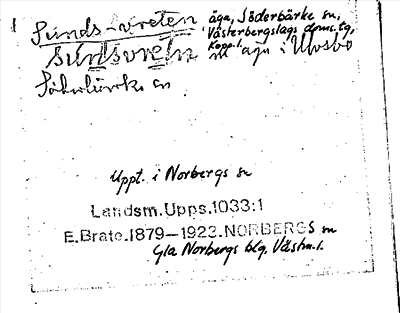 Sunds-vreten äga, Söderbärke sn,
Västerbergslags doms.tg,
Kopp.l.
Sundsvretn äga i Ulvsbo
Söderbärke sn
Uppt. i Norbergs sn
Landsm.Upps.1033:1
E.Brate.1879–1923.NORBERGS sn
Gla Norbergs blg. Västm.l.